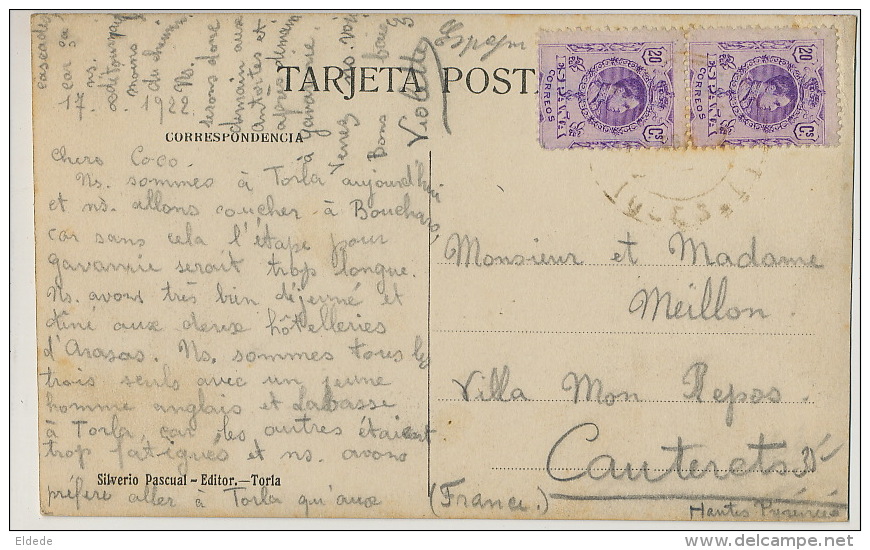 TARJETA POST
CORRESPONDENCIA
17. 8. 1922.
Chers Coco.
Ns. sommes à Torla aujourd'hui
et ns. allons coucher à Boucharo,
car sans cela l'étape pour
gavarnie serait trop longue.
Ns. avons très bien déjeuné et
dîné aux deux hôtelleries
d'Arasas. Ns. sommes tous les
trois seuls avec un jeune
homme anglais et Labasse
à Torla, car les autres étaient
trop fatigués et ns. avons
préféré aller à Torla qu'aux
cascades
car ça
ns.
moins
du chemin
Ns.
serons donc
demain aux
et
après demain
à gavarnie.
Venez ns. voir
Bons baisers
Violette
Espagne
20 Cs
ESPAÑA
CORREOS
20 Cs
ESPAÑA
CORREOS
Monsieur et Madame
Meillon.
Villa Mon Repos
Cauterets
(France.)
Hautes Pyrénées
Silverio Pascual - Editor. — Torla
Eldede
delcampe.net